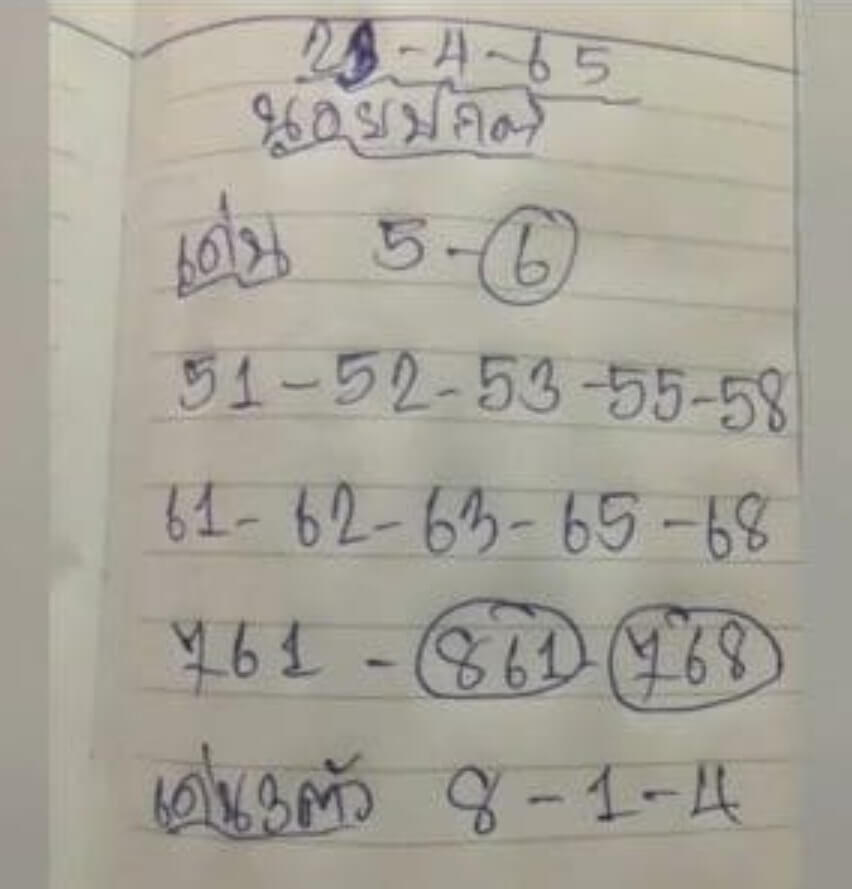 - 4 - 65
เด่น 5 - 6
51 - 52 - 53 - 55 - 58
61 - 62 - 63 - 65 - 68
761 - 861 - 768
เด่น3ตัว 8 - 1 - 4